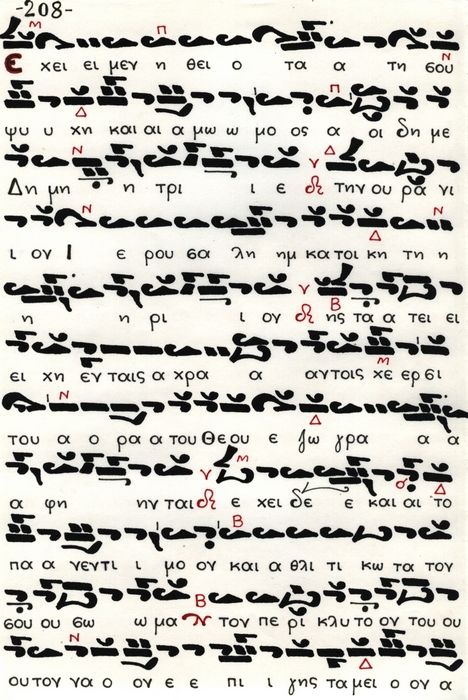 -208-
Μ Π Ν
Ε χει ει μεν η θει ο τα α τη σου
Δ Π
ψυ υ χη και αι α μω ω μο ος α οι δη με
Ν Δ
Δη μη η τρι ι ε την ου ρα νι
Ν Δ Ν
ι ον Ι ε ρου σα λη ημ κα τοι κη τη η
Β
η η ρι ι ον ης τα α τει ει
Μ
ει χη εν ταις α χρα α αντοις χε ερ σι
Ν Δ
του α ο ρα α του Θε ου ε ζω γρα α α
Μ Δ
α φη ην ται ε χει δε ε και αι το
Β
πα α νεν τι ι μο ον και α θλι τι κω τα τον
Β
σου ου σω ω μα τον πε ρι κλυ το ον του ου
Ν Δ
ου τον να ο ον ε ε πι ι γης τα μει ο ον α